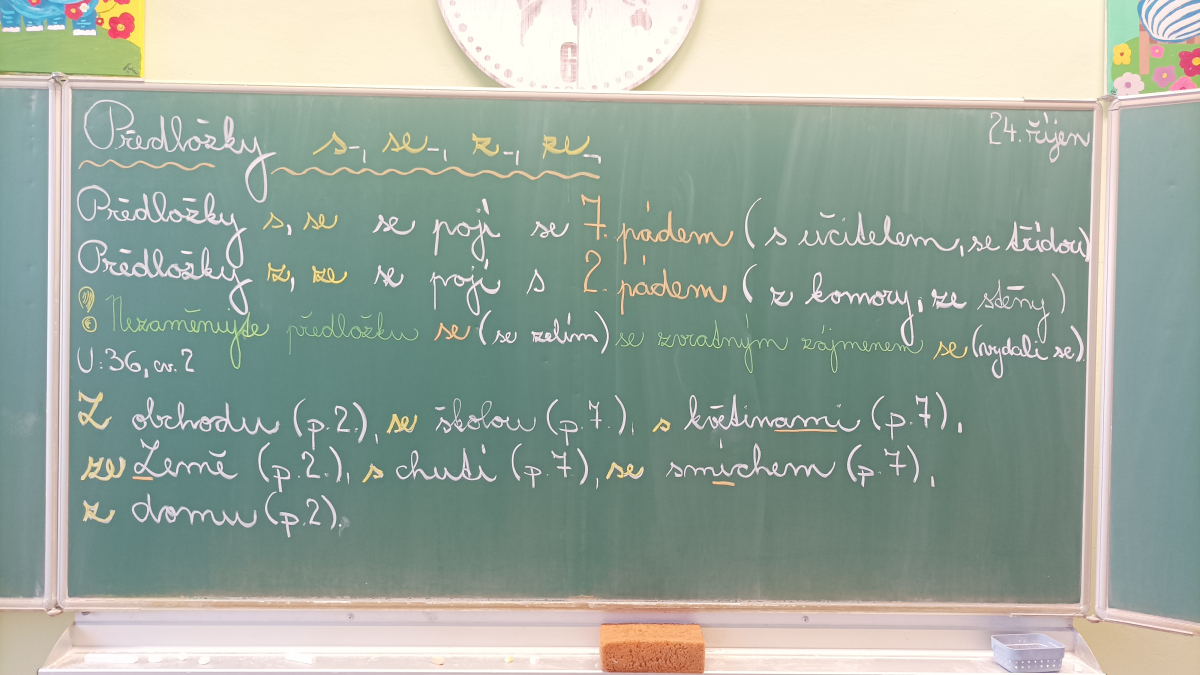 24. říjen
Předložky s-, se-, z-, ze-,
Předložky s, se se pojí se 7. pádem (s učitelem, se třídou)
Předložky z, ze se pojí s 2. pádem (z komory, ze stěny)
! Nezaměňujte předložku se (se zelím) se zvratným zájmenem se (vydali se).
U: 36, cv. 2
Z obchodu (p. 2.), se školou (p. 7.), s květinami (p. 7),
ze Země (p. 2.), s chutí (p. 7), se smíchem (p. 7),
z domu (p. 2).
6